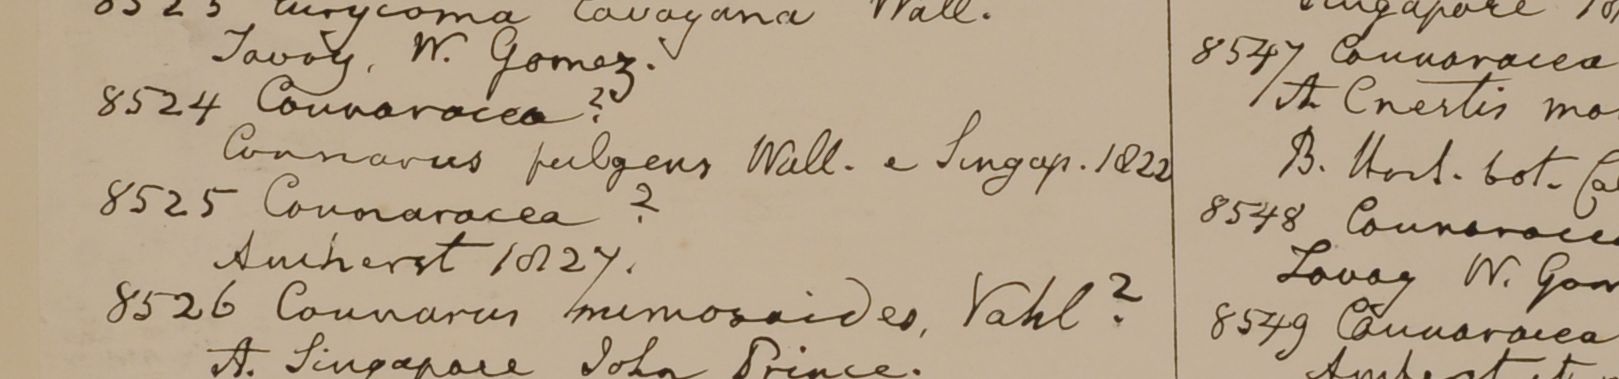 8523 Eurycoma Tavoyana Wall.
Tavoy, W. Gomez.
8524 Connaracea?
Connarus fulgens Wall. e Singap. 1822
8525 Connaracea?
Amherst 1827.
8526 Connarus mimosoides, Vahl?
A. Singapore John Prince.
Singapore
8547 Connaracea
A Cnestis mo
B. Hort. bot. Ca
8548 Connaracea
Tavoy W. Gom
8549 Connaracea
Amherst